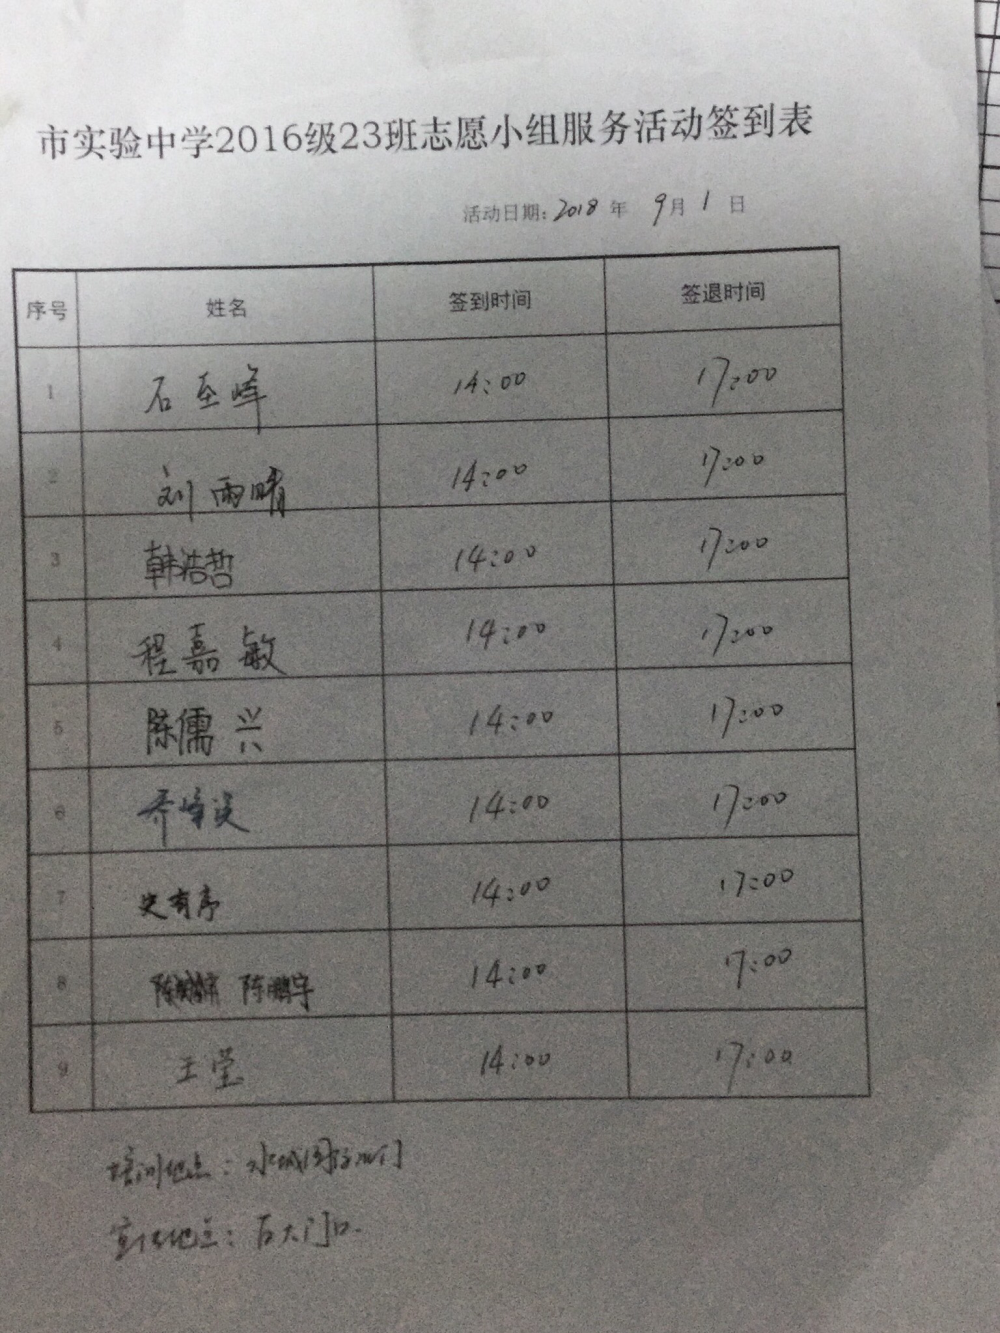 市实验中学2016级23班志愿小组服务活动签到表
活动日期:2018年 9月1日
序号 姓名 签到时间 签退时间
1 石至峰 14:00 17:00
2 刘雨晴 14:00 17:00
3 韩浩哲 14:00 17:00
4 程嘉敏 14:00 17:00
5 陈儒兴 14:00 17:00
6 乔 14:00 17:00
7 史有序 14:00 17:00
8 陈鹏宇 14:00 17:00
9 王莹 14:00 17:00
培训地点:水城
宣传地点:后大门口.